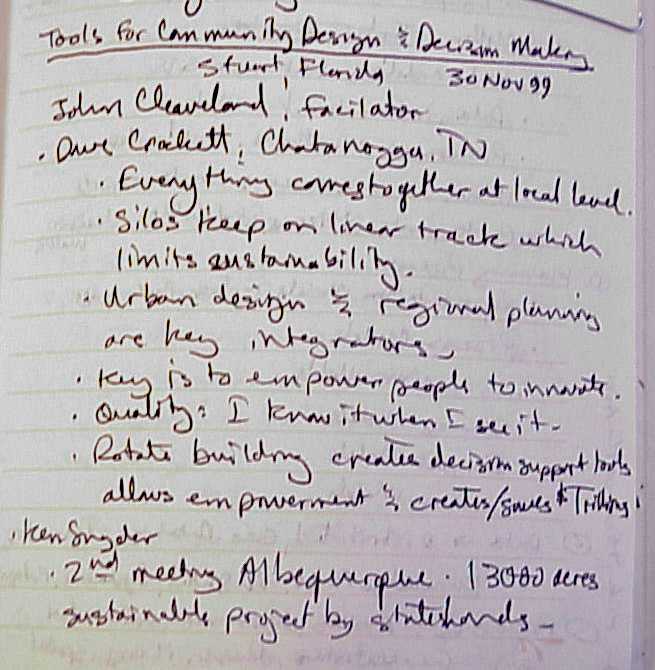 Tools for Community Design & Decision Making
Stuart, Florida 30 Nov 99
John Cleaveland, facilator
· Dave Crockett, Chatanogga, TN
· Everything comes together at local level.
· Silos keep on linear track which
limits sustainability.
· Urban design & regional planning
are key integrators.
· Key is to empower people to innovate.
· Quality: I know it when I see it.
· Rotate building creates decision support tools
allows empowerment & creates/saves $
· Ken Snyder
· 2nd meeting Albequerque. 13000 acres
sustainable project by